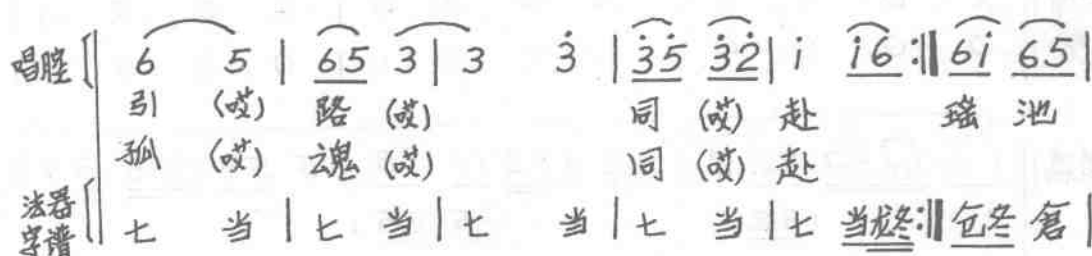 唱腔 6 5 | 65 3 | 3 3̇ | 3̇5̇ 3̇2̇ | i i6 :‖ 6i 65 |
引 (哎) 路 (哎) 同 (哎) 赴 瑶 池
孤 (哎) 魂 (哎) 同 (哎) 赴
法器字谱 七 当 | 七 当 | 七 当 | 七 当 | 七 当龙冬 :‖ 仓冬 倉 |